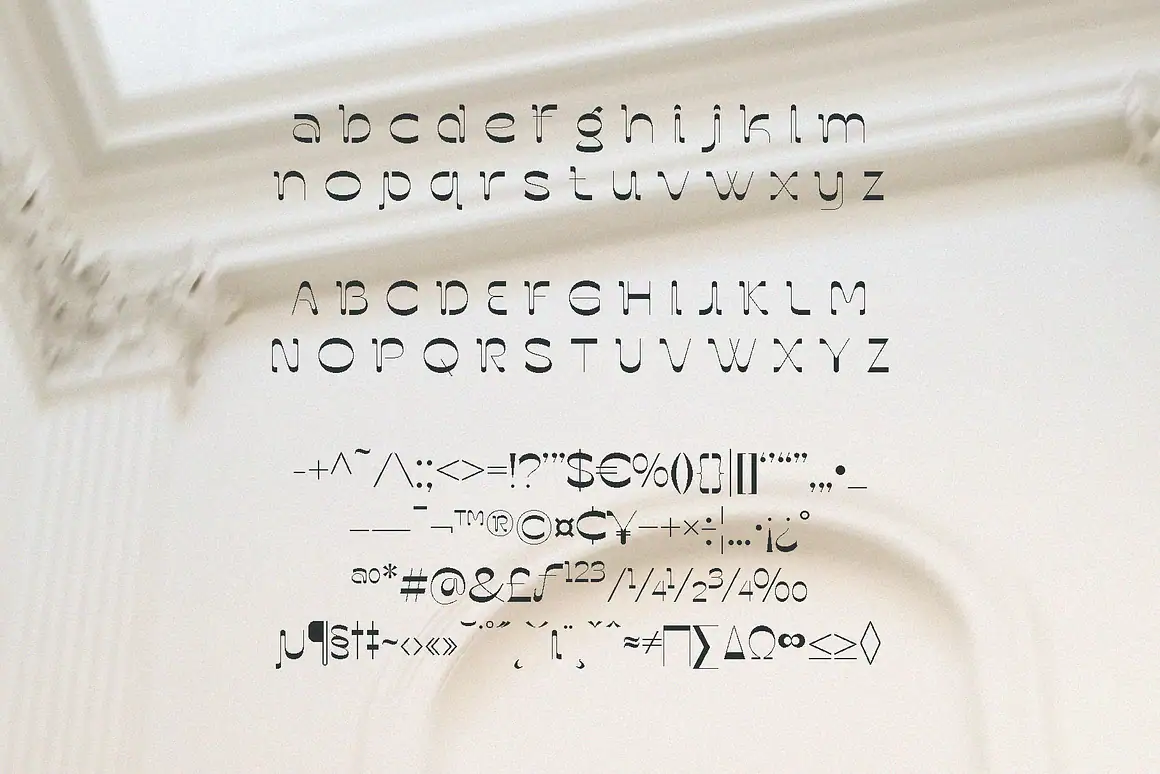 abcdefghijklm
nopqrstuvwxyz
ABCDEFGHIJKLM
NOPQRSTUVWXYZ
-+^~/\:;<>=!?’”$€%(){}|[]‘’“”‚„•_
–—¯¬™®©¤¢¥−+×÷¦…·¡¿°
ªº*#@&£ƒ¹²³/¼½¾‰
µ¶§†‡~‹›«»˘˙˚˝˛ˇı¨¸ˇˆ≈≠∏∑∆Ω∞≤≥◊